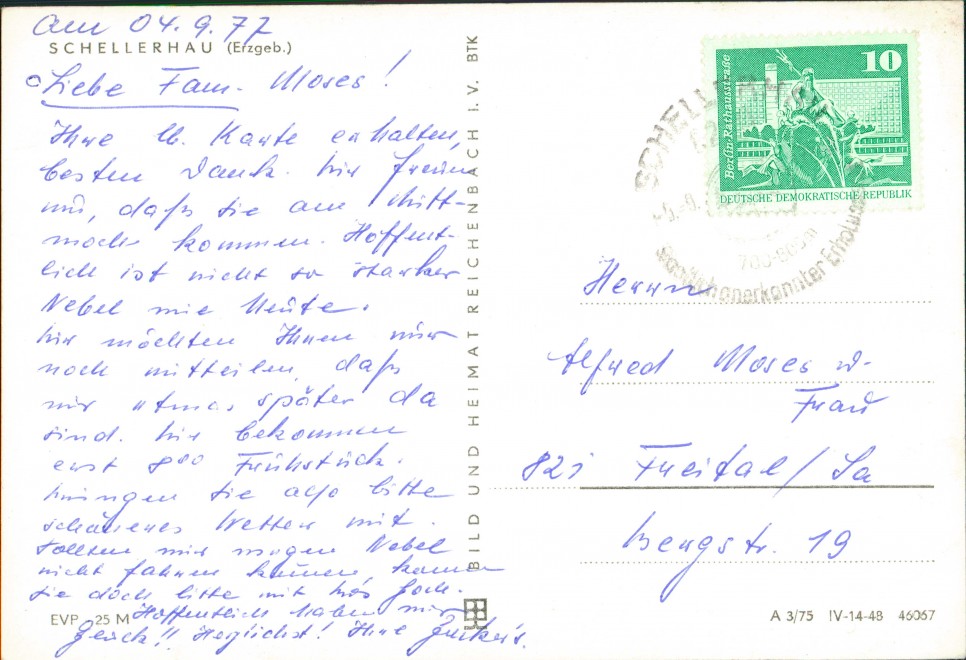 Am 04.9.77
SCHELLERHAU (Erzgeb.)
Liebe Fam. Moses!
Ihre lb. Karte erhalten,
besten Dank. Wir freuen
uns, daß sie am Mitt-
woch kommen. Hoffent-
lich ist nicht so starker
Nebel wie Heute.
Wir möchten Ihnen nur
noch mitteilen, daß
wir etwas später da
sind. Wir bekommen
erst 8⁰⁰ Frühstück.
Bringen Sie also bitte
schöneres Wetter mit.
Sollten wir wegen Nebel
nicht fahren können komm
sie doch bitte mit
Hoffentlich haben wir
EVP -25 M
Glück!! Herzlichst! Ihre Zurker's.
BILD UND HEIMAT REICHENBACH I.V. BTK
10
Berlin·Rathausstraße
DEUTSCHE DEMOKRATISCHE REPUBLIK
SCHELLERHAU
Staatlich anerkannter Erholungs
Herrn
Alfred Moses u.
Frau
821 Freital/Sa
Bergstr. 19
A 3/75 IV-14-48 46067